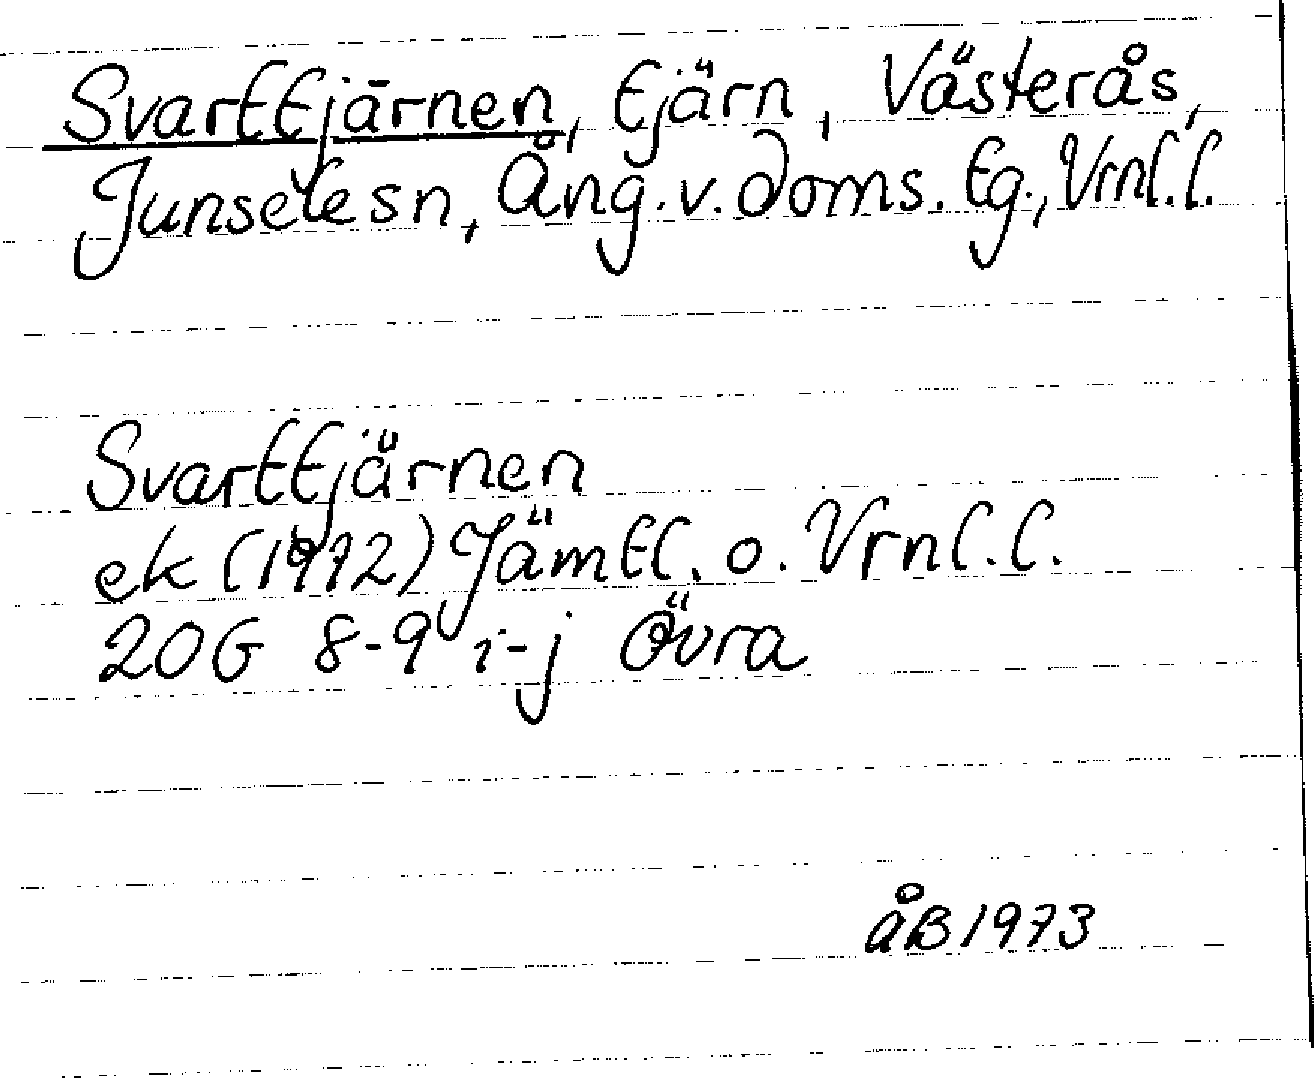 Svarttjärnen, tjärn, Västerås,
Junsele sn, Ång. v. doms. tg., Vrnl. l.
Svarttjärnen
ek (1972) Jämtl. o. Vrnl. l.
20G 8-9 i-j Övra
åB 1973